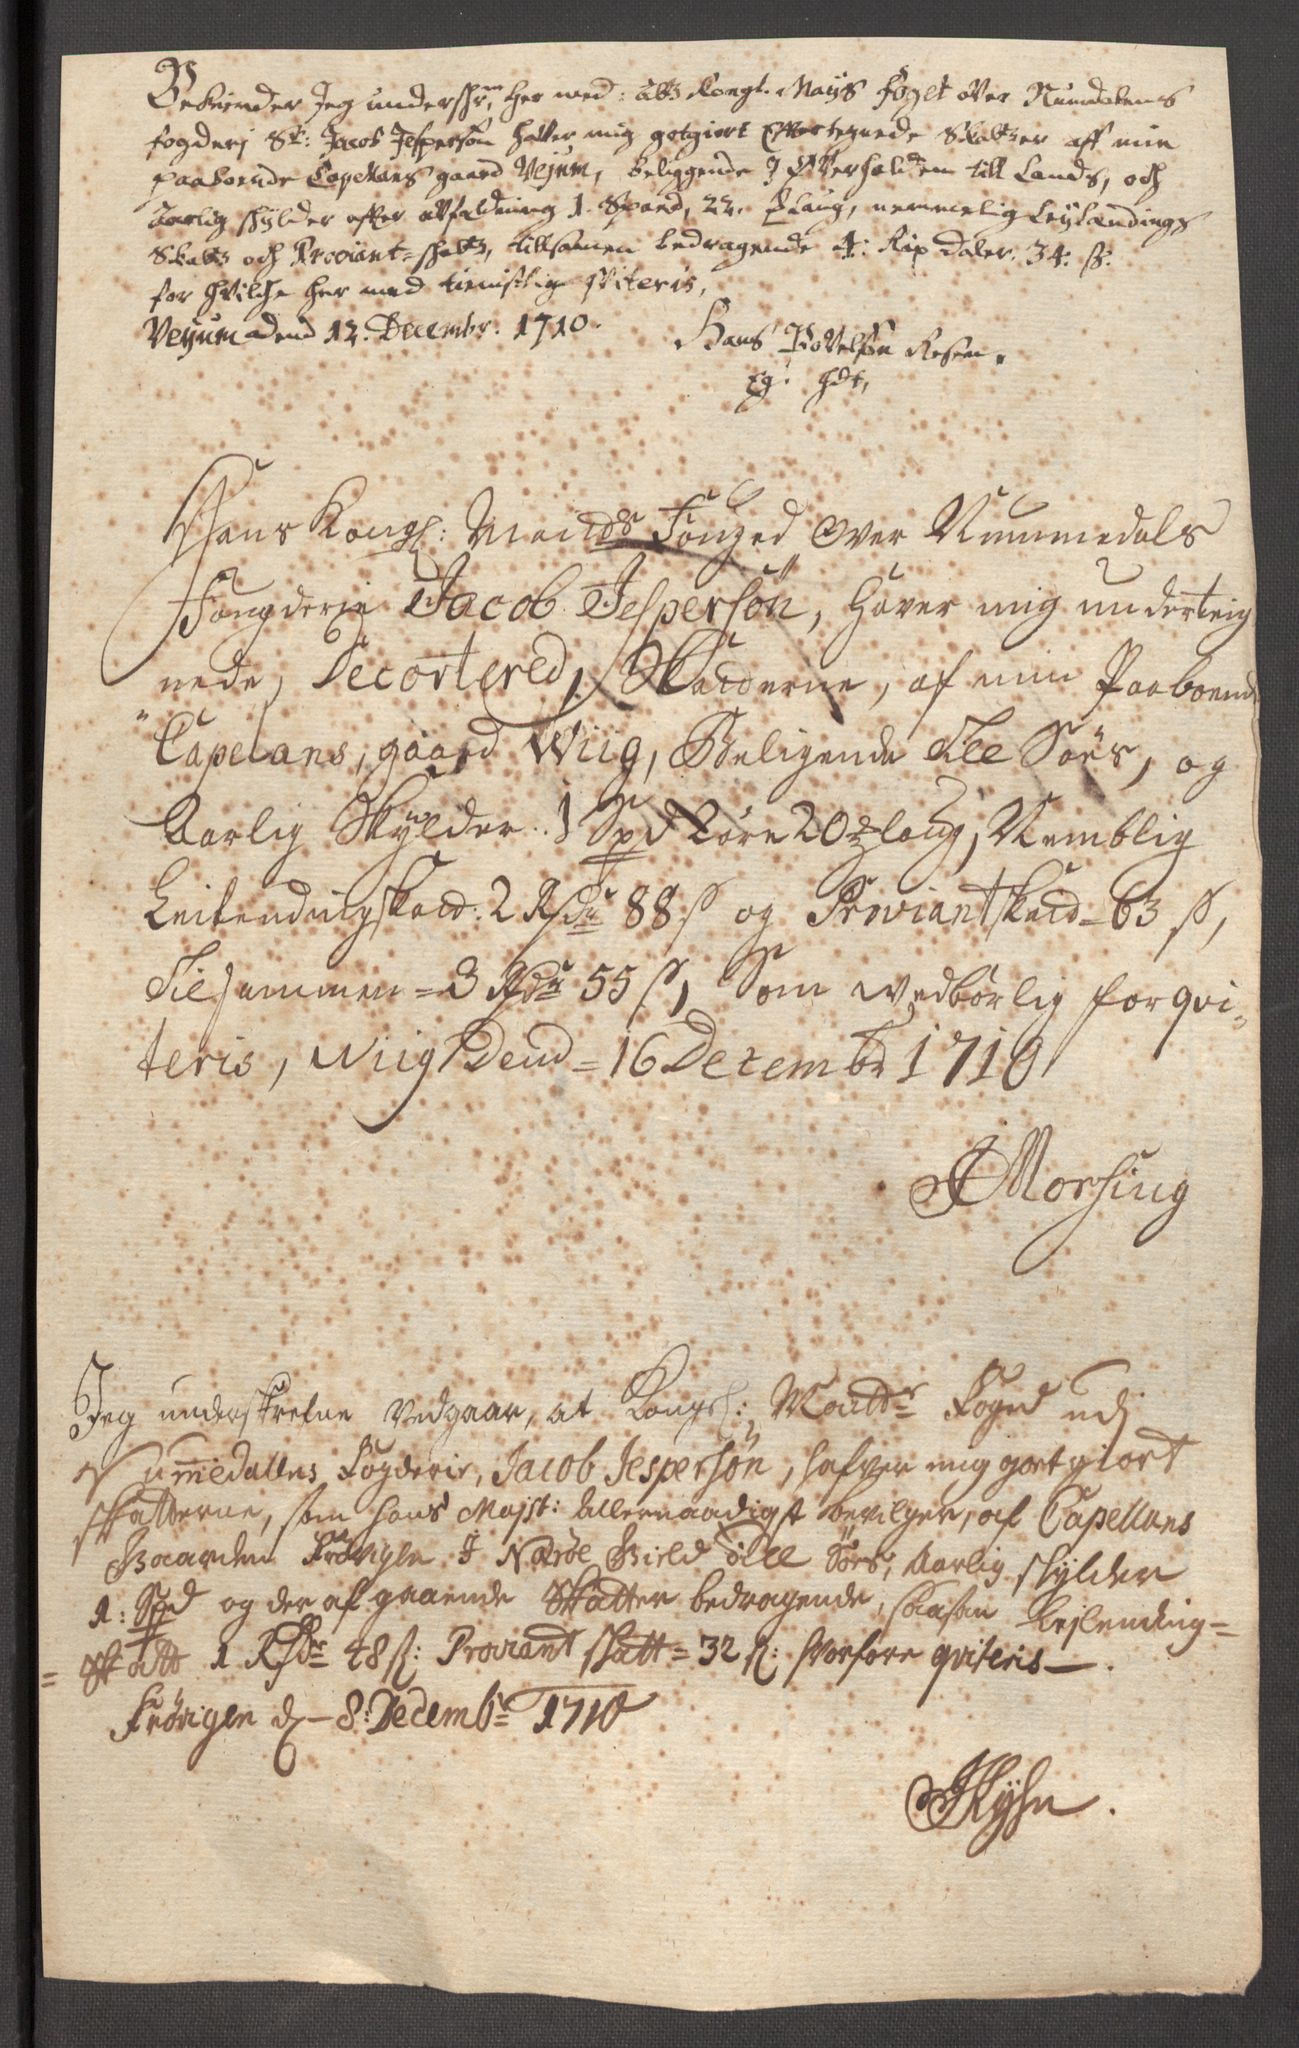 Bekiender Jeg undershr:, her med: att Kongl. Mayts foget over Numedalens
fogderj Sr: Jacob Jesperson hafver mig gotgiort Effterschrefne Skatter aff min
paaboende Capellans gaard Vejum, beliggende J Ofverhalden till Lands, och
aarlig skylder efter affældning 1. Spand, 22. laug, nemmelig Leylændings
Skatt och Proviant-skatt, tilsamen bedragende 4: Rix daler. 34. s.
for hvilche her med tienstlig qviteris,
Vejum dend 12. Decembr. 1710.
Hans Povelsøn Resen.
Eg. hdt,
Hans Kongl: Maids Fouged Over Nummedals
Fougderje Jacob Jespersøn, haver mig underteig
nede, Decortered, Skatterne, af min Paaboend
Capelans, gaard Wiig, Beligende Till Søes, og
Aarlig Skylder 1 Spd 2 øre 20 laug, Nemblig
Leilendingskatt: 2 Rdr 88 s og Proviantskatt 63 s,
Tilsammen = 3 Rdr 55 s, Som wedbørlig for qvi-
teris, Wiig Dend = 16 Decembr 1710
Morsing
Jeg underskrefne Vedgaar, at Kongl: Maitts Foged udj
Nummedallens Fogderie, Jacob Jespersøn, hafver mig godtgiort
skatterne, som hans Majst: Allernaadigst bevilger, af Capellans
Gaarden Frøvigle J Nærøe Gield till Søes, Aarlig skylder
1: Spd og der af gaaende Skatter bedragende, saasom Lejlending=
= skatt 1 Rdr 48 s: Proviant skatt = 32 s: hvorfore qviteris.
Frøvigle d. 8. Decembr 1710
Kyhn.